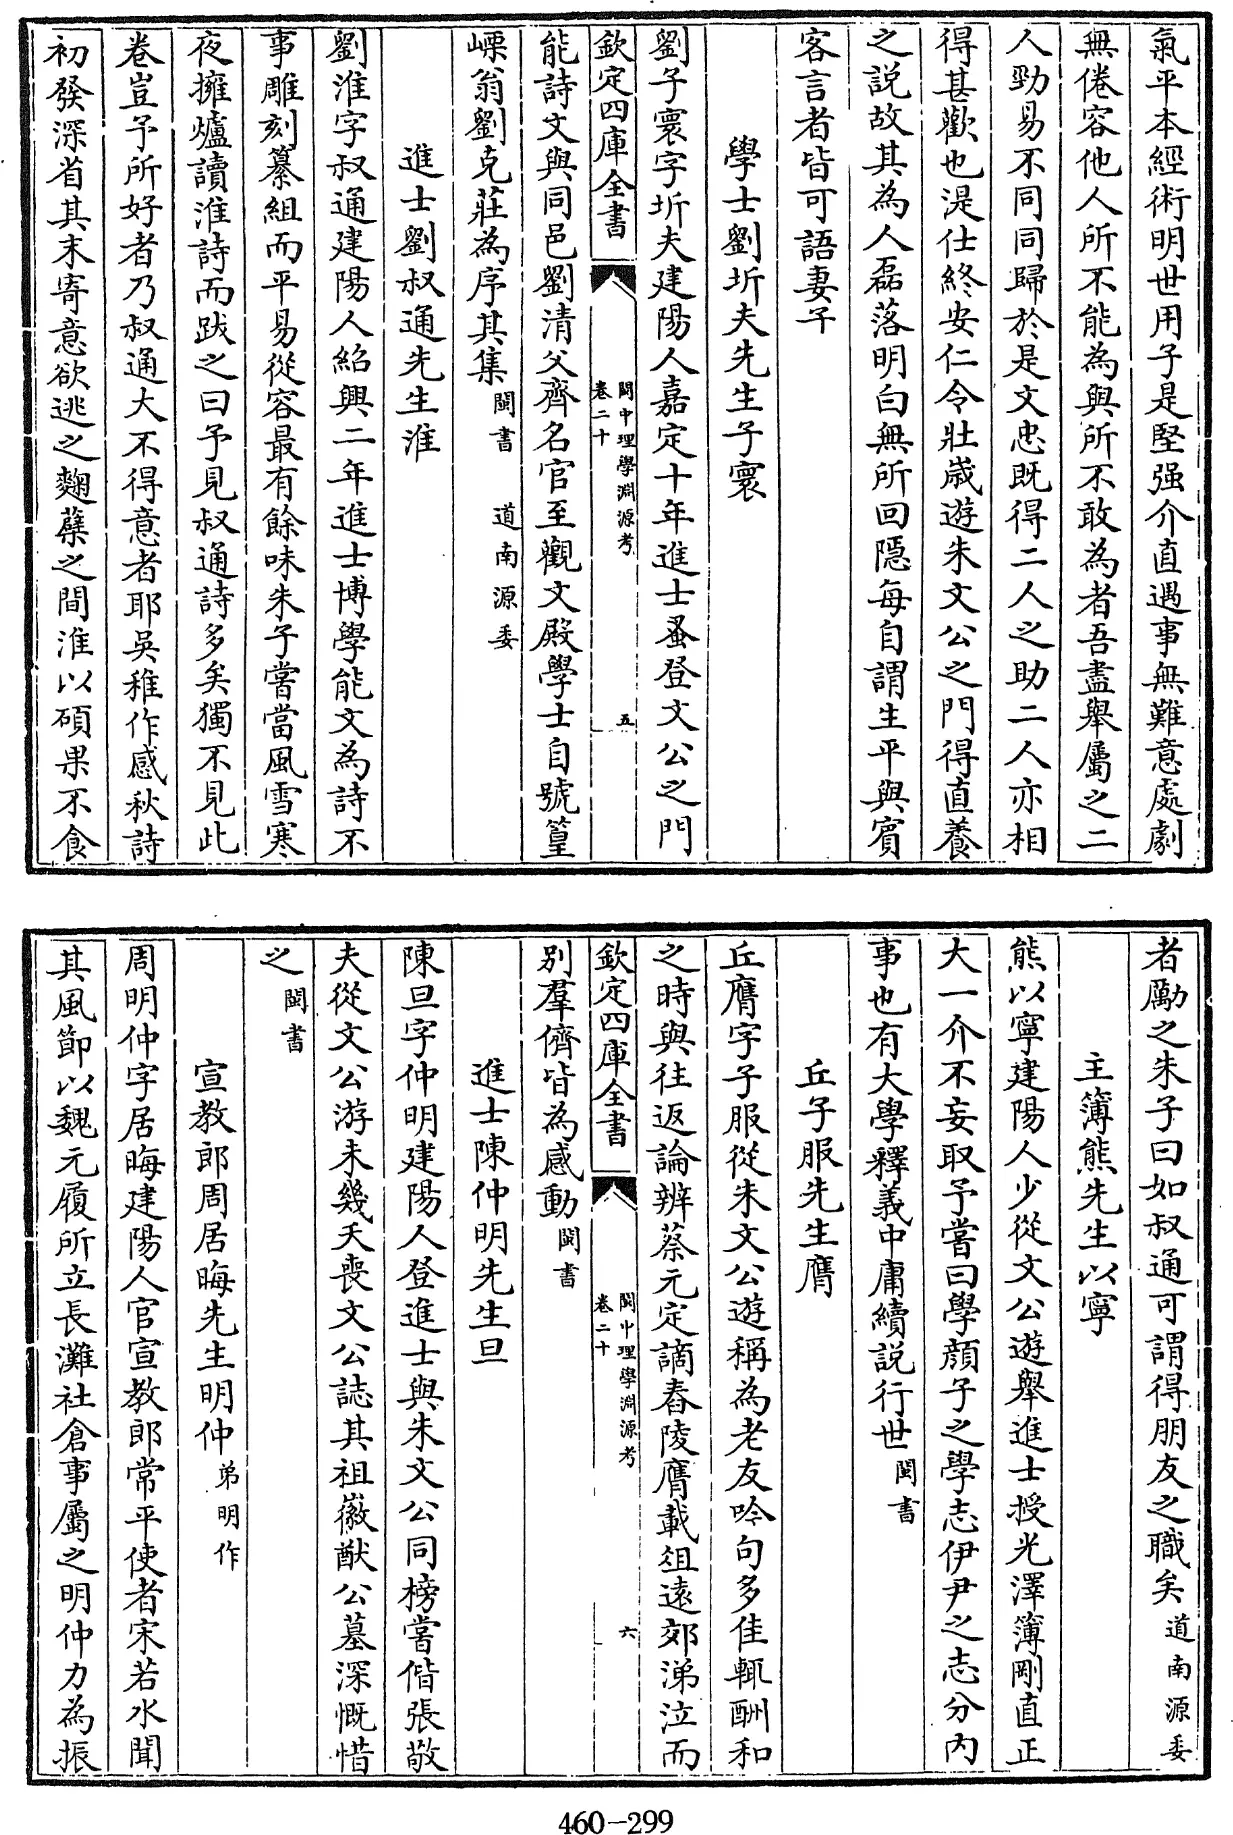 氣平本經術明世用子是堅强介直遇事無難意處劇
無倦容他人所不能為與所不敢為者吾盡舉屬之二
人勁易不同同歸於是文忠既得二人之助二人亦相
得甚歡也湜仕終安仁令壯歲遊朱文公之門得直養
之說故其為人磊落明白無所回隱每自謂生平與賓
客言者皆可語妻子
學士劉圻夫先生子寰
劉子寰字圻夫建陽人嘉定十年進士蚤登文公之門
欽定四庫全書
閩中理學淵源考
卷二十
五
能詩文與同邑劉清父齊名官至觀文殿學士自號篁
㟳翁劉克莊為序其集閩書 道南源委
進士劉叔通先生淮
劉淮字叔通建陽人紹興二年進士博學能文為詩不
事雕刻纂組而平易從容最有餘味朱子嘗當風雪寒
夜擁爐讀淮詩而跋之曰予見叔通詩多矣獨不見此
卷豈予所好者乃叔通大不得意者耶吳稚作感秋詩
初發深省其末寄意欲逃之麴蘖之間淮以碩果不食
者勵之朱子曰如叔通可謂得朋友之職矣道南源委
主簿熊先生以寧
熊以寧建陽人少從文公遊舉進士授光澤簿剛直正
大一介不妄取予嘗曰學顏子之學志伊尹之志分内
事也有大學釋義中庸續說行世閩書
丘子服先生膺
丘膺字子服從朱文公遊稱為老友吟句多佳輒酬和
之時與往返論辨蔡元定謫舂陵膺載俎遠郊涕泣而
欽定四庫全書
閩中理學淵源考
卷二十
六
别羣儕皆為感動閩書
進士陳仲明先生旦
陳旦字仲明建陽人登進士與朱文公同榜嘗偕張敬
夫從文公游未幾夭喪文公誌其祖徽猷公墓深慨惜
之閩書
宣教郎周居晦先生明仲弟明作
周明仲字居晦建陽人官宣教郎常平使者宋若水聞
其風節以魏元履所立長灘社倉事屬之明仲力為振
460-299